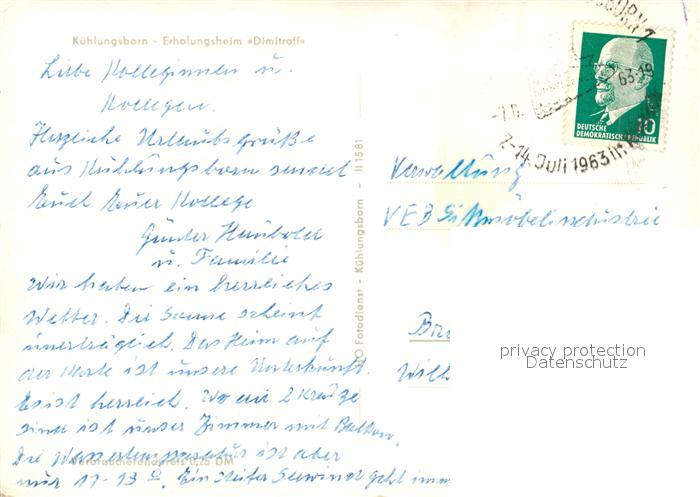 Kühlungsborn - Erholungsheim »Dimitroff«
Liebe Kolleginnen u.
Kollegen.
Herzliche Urlaubsgrüße
aus Kühlungsborn sendet
Euch Euer Kollege
Günter Haubold
u. Familie
Wir haben ein herrliches
Wetter. Die Sonne scheint
unerträglich. Das Heim auf
der Karte ist unsere Unterkunft.
Es ist herrlich. Wo die 2 Kreuze
sind ist unser Zimmer mit Balkon.
Die Wassertemperatur ist aber
nur 11-13 °. Ein steifer Seewind geht imm
0,25 DM
Fotodienst - Kühlungsborn - II 1581
63-19
7.-14. Juli 1963
DEUTSCHE
DEMOKRATISCHE REPUBLIK
10
Verwaltung
VEB Sitzmöbelindustrie
Wilh
privacy protection
Datenschutz